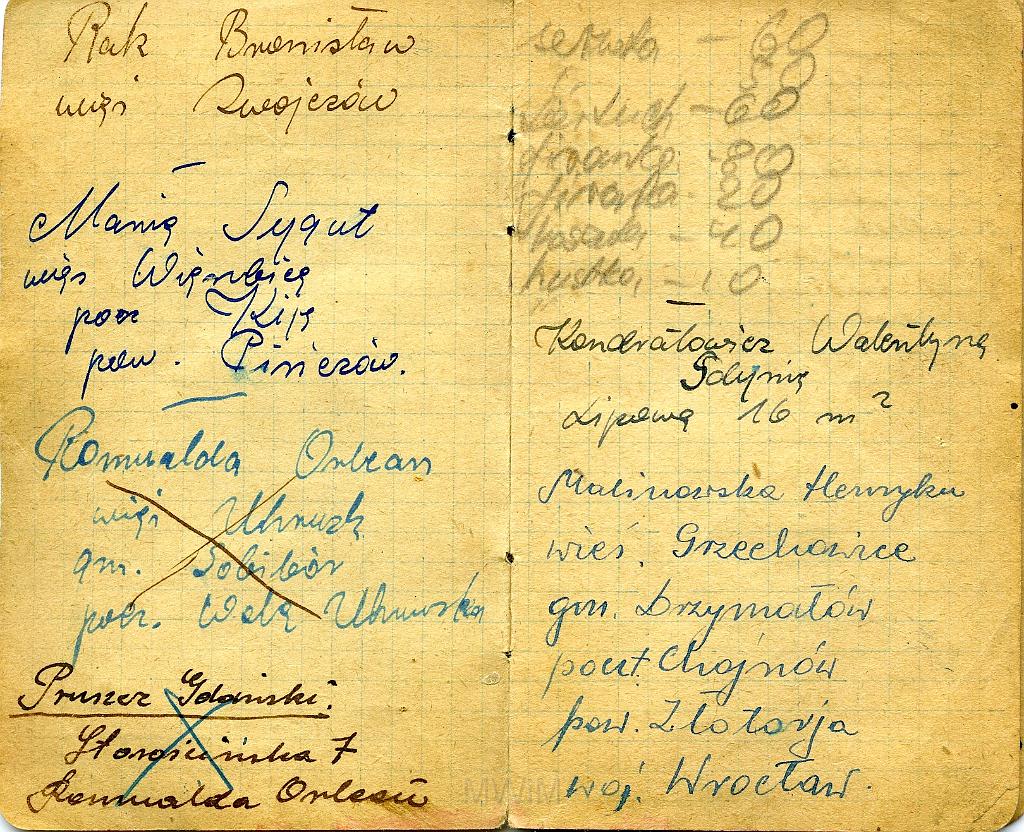 Rak Bronisław
więś Zwojezów
Manię Sygut
więs Więrzbicę
pocz Kiję
pow. Pinczów.
Romualda Orlean
więś Uhruzk
gm. Sobibór
pocz. Wolą Uhruska
Pruszcz Gdański.
Starościńska 7
Romualda Orleań
serweta - 60
80
fartuch - 60
firanka - 80
firanka - 20
- 40
hustka - 10
Kondratowicz Walentyną
Gdynię
Lipową 16 m 2
Malinowska Henryka
wieś. Grzechowice
gm. Drzymałów
poczt. Chojnów
pow. Złotorja
woj. Wrocław.
MWiM